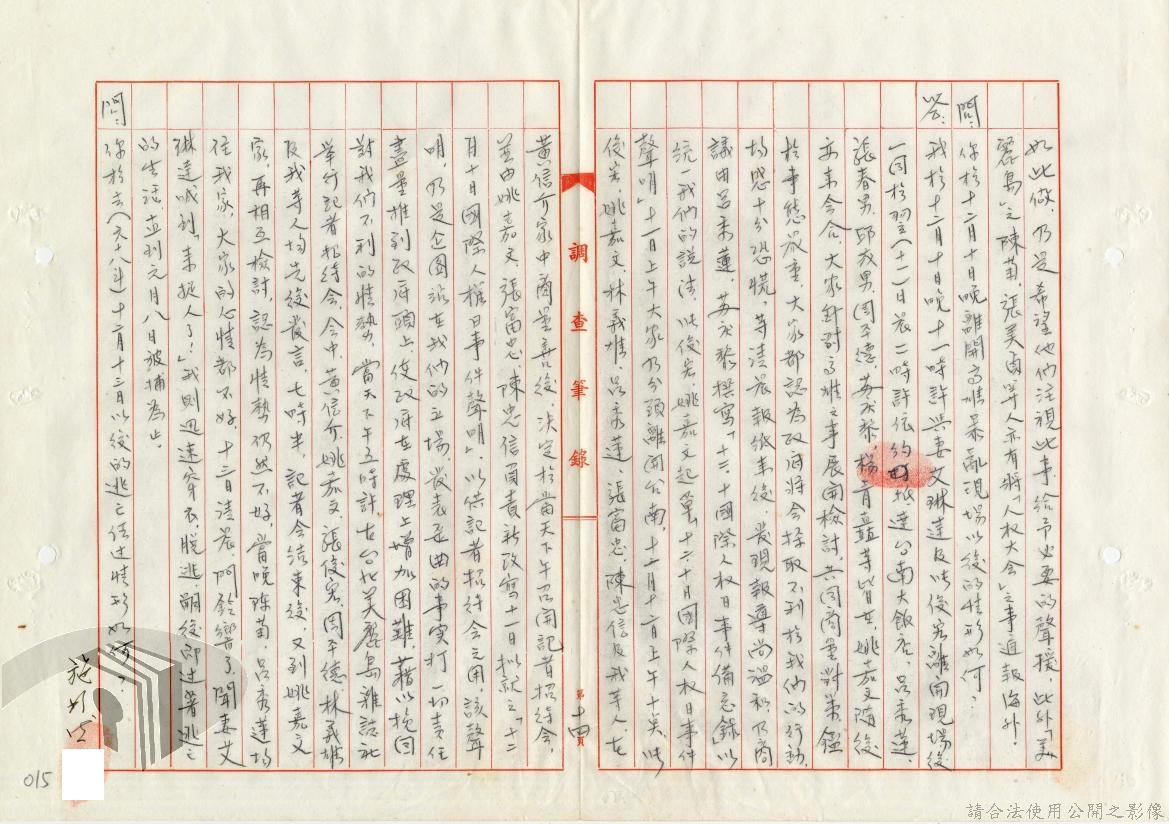 如此做，乃是希望他們注視此事，給予必要的聲援，此外「美
麗島」之陳菊、張美貞等人亦有將「人權大會」之事通報海外。
問：你於十二月十日晚離開高雄暴亂現場以後的情形如何？
答：我於十二月十日晚十一時許與妻艾琳達及張俊宏離開現場後
一同於翌（十一）日晨二時許依約抵達台南大飯店，呂秀蓮、
張春男、邱茂男、周平德、蘇秋黎、楊青矗等皆在，姚嘉文隨後
亦來會合，大家針對高雄之事展開檢討，共同商量對策，鑑
於事態嚴重，大家都認為政府將會採取不利於我們的行動，
均感十分恐慌，等清晨報紙來後，發現報導尚溫和，乃商
議由呂秀蓮、蘇秋黎撰寫「十二、十國際人權日事件備忘錄」以
統一我們的說法，張俊宏、姚嘉文起草「十二十日國際人權日事件
聲明」十一日上午大家乃分頭離開台南。十二月十二日上午十矣，張
俊宏、姚嘉文、林義雄、呂秀蓮、張富忠、陳忠信及我等人在
黃信介家中商量善後，決定於當天下午召開記者招待會，
並由姚嘉文、張富忠、陳忠信負責新改寫十一日擬就之「十二
月十日國際人權日事件聲明」，以供記者招待會之用，該聲
明，乃是企圖站在我們的立場，發表歪曲的事實打一切責任
盡量推到政府頭上，使政府在處理上增加困難，藉以挽回
對我們不利的情勢。當天下午五時許在台北美麗島雜誌社
舉行記者招待會，會中，黃信介、姚嘉文、張俊宏、周平德、林義雄
及我等人均先後發言，七時半，記者會結束後，又到姚嘉文
家，再相互檢討，認為情勢仍然不好，當晚陳菊、呂秀蓮均
住我家，大家的心情都不好，十三日清晨門鈴響了，聞妻艾
琳達喊到「來捉人了！」我則迅速穿衣，脫逃，嗣後即過著逃亡
的生活，直到元月八日被捕為止。
問：你於去（六十八年）十二月十三日以後的逃亡經過情形如何？
施明德
調查筆錄
第十四頁
015
請合法使用公開之影像